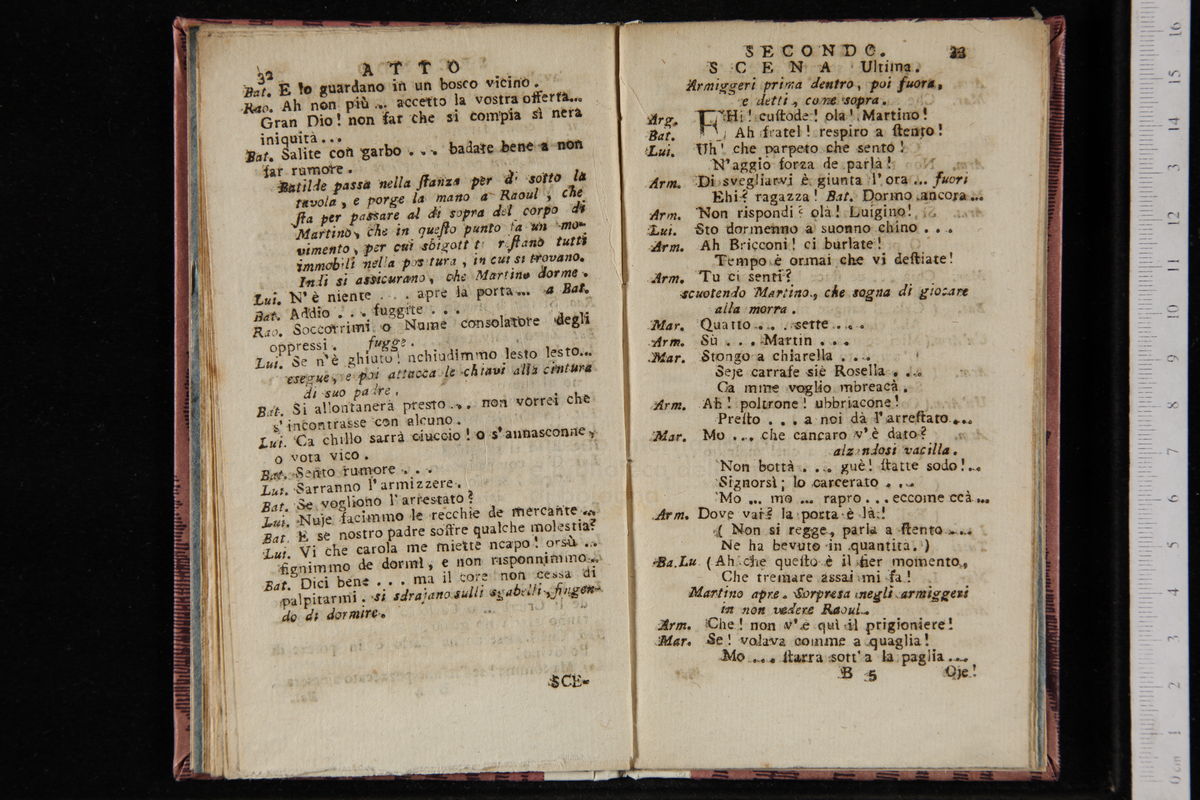 32
A T T O
Bat. E lo guardano in un bosco vicino.
Rao. Ah non più ... accetto la vostra offerta...
Gran Dio! non far che si compia sì nera
iniquità...
Bat. Salite con garbo . . . badate bene a non
far rumore.
Batilde passa nella ſtanza per di sotto la
tavola, e porge la mano a Raoul, che
ſta per passare al di sopra del corpo di
Martino, che in queſto punto fa un mo-
vimento, per cui sbigott ti reſtano tutti
immobili nella positura, in cui si trovano.
Indi si assicurano, che Martino dorme.
Lui. N'è niente . . . apre la porta... a Bat.
Bat. Addio . . . fuggite . . .
Rao. Soccorrimi o Nume consolatore degli
oppressi. fugge.
Lui. Se n'è ghiuto! nchiudimmo lesto lesto...
esegue, e poi attacca le chiavi alla cintura
di suo padre.
Bat. Si allontanerà presto ... non vorrei che
s'incontrasse con alcuno.
Lui. Ca chillo sarrà ciuccio! o s'annasconne,
o vota vico.
Bat. Sento rumore . . .
Lui. Sarranno l'armizzere.
Bat. Se vogliono l'arrestato?
Lui. Nuje facimmo le recchie de mercante ...
Bat. E se nostro padre soffre qualche molestia?
Lui. Vi che carola me miette ncapo! orsù ...
fignimmo de dormì, e non risponnimmo...
Bat. Dici bene . . . ma il core non cessa di
palpitarmi. si sdrajano sulli sgabelli, fingen-
do di dormire.
SCE-
SECONDO. 33
S C E N A Ultima.
Armiggeri prima dentro, poi fuora,
e detti, come sopra.
Arg. EHi! cuſtode! ola! Martino!
Bat. Ah fratel! respiro a ſtento!
Lui. Uh! che parpeto che sento!
N'aggio forza de parlà!
Arm. Di svegliarvi è giunta l'ora ... fuori
Ehi? ragazza! Bat. Dormo ancora...
Arm. Non rispondi? olà! Luigino!
Lui. Sto dormenno a suonno chino . . .
Arm. Ah Bricconi! ci burlate!
Tempo è ormai che vi deſtiate!
Arm. Tu ci senti?
scuotendo Martino, che sogna di giocare
alla morra.
Mar. Quatto ... . sette ... .
Arm. Sù . . . Martin . . .
Mar. Stongo a chiarella . . .
Seje carrafe siè Rosella . . .
Ca mme voglio mbreacà.
Arm. Ah! poltrone! ubbriacone!
Preſto . . . a noi dà l'arreſtato ...
Mar. Mo ... che cancaro v'è dato?
alzandosi vacilla.
Non bottà . . . guè! ſtatte sodo!...
Signorsì; lo carcerato . . .
Mo ... mo ... rapro . . . eccome ccà ...
Arm. Dove vai? la porta è là!
( Non si regge, parla a ſtento ...
Ne ha bevuto in quantità. )
Ba.Lu. (Ah che queſto è il fier momento,
Che tremare assai mi fa!
Martino apre. Sorpresa negli armiggeri
in non vedere Raoul.
Arm. Che! non v'è quì il prigioniere!
Mar. Se! volava comme a quaglia!
Mo ... ſtarrà sott'a la paglia ...
B 5 Oje!